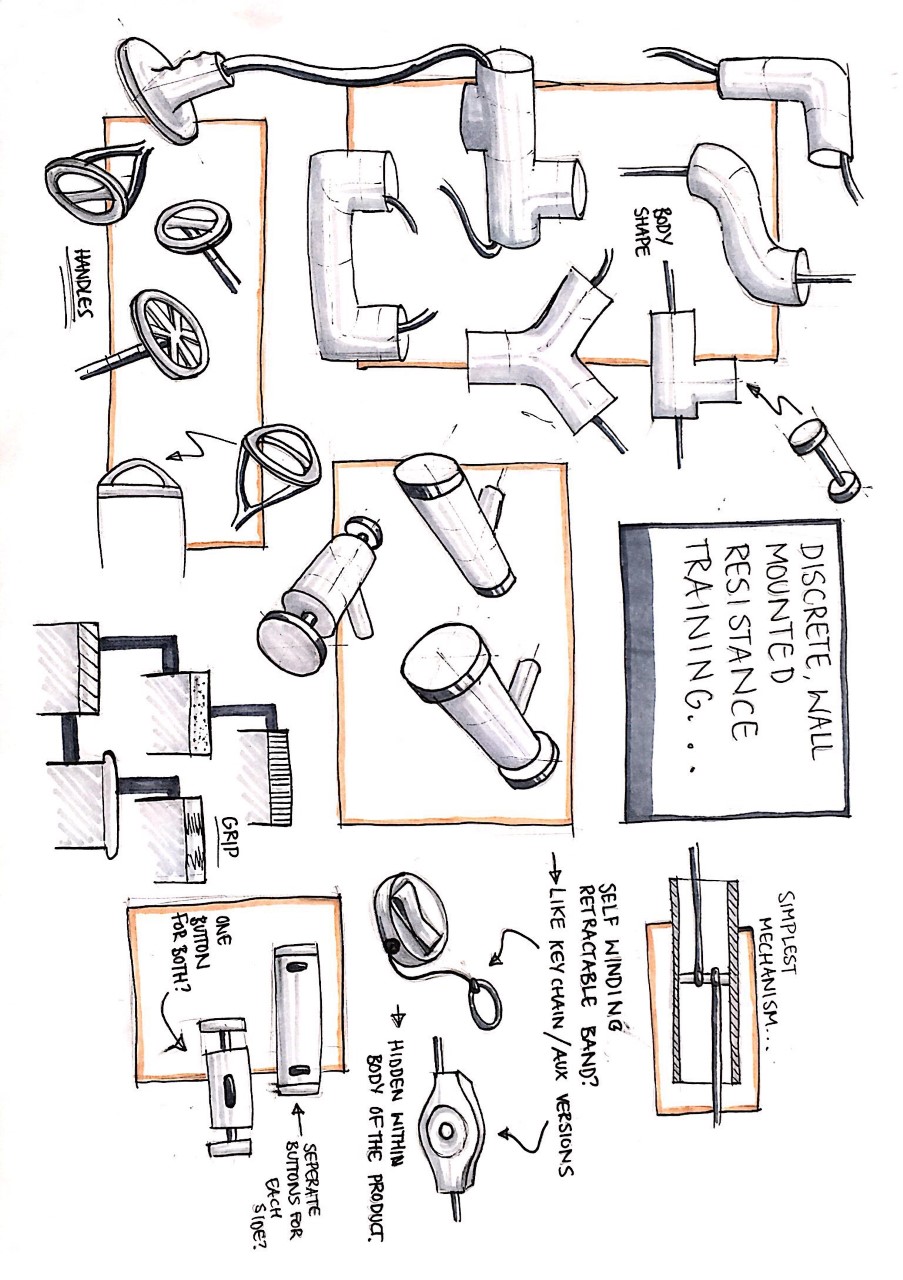 DISCRETE, WALL
MOUNTED
RESISTANCE
TRAINING...
BODY
SHAPE
SIMPLEST
MECHANISM...
SELF WINDING
RETRACTABLE BAND?
→ LIKE KEY CHAIN/AUX VERSIONS
→ HIDDEN WITHIN
BODY OF THE PRODUCT.
SEPERATE
BUTTONS FOR
EACH
SIDE?
ONE
BUTTON
FOR BOTH?
GRIP
HANDLES